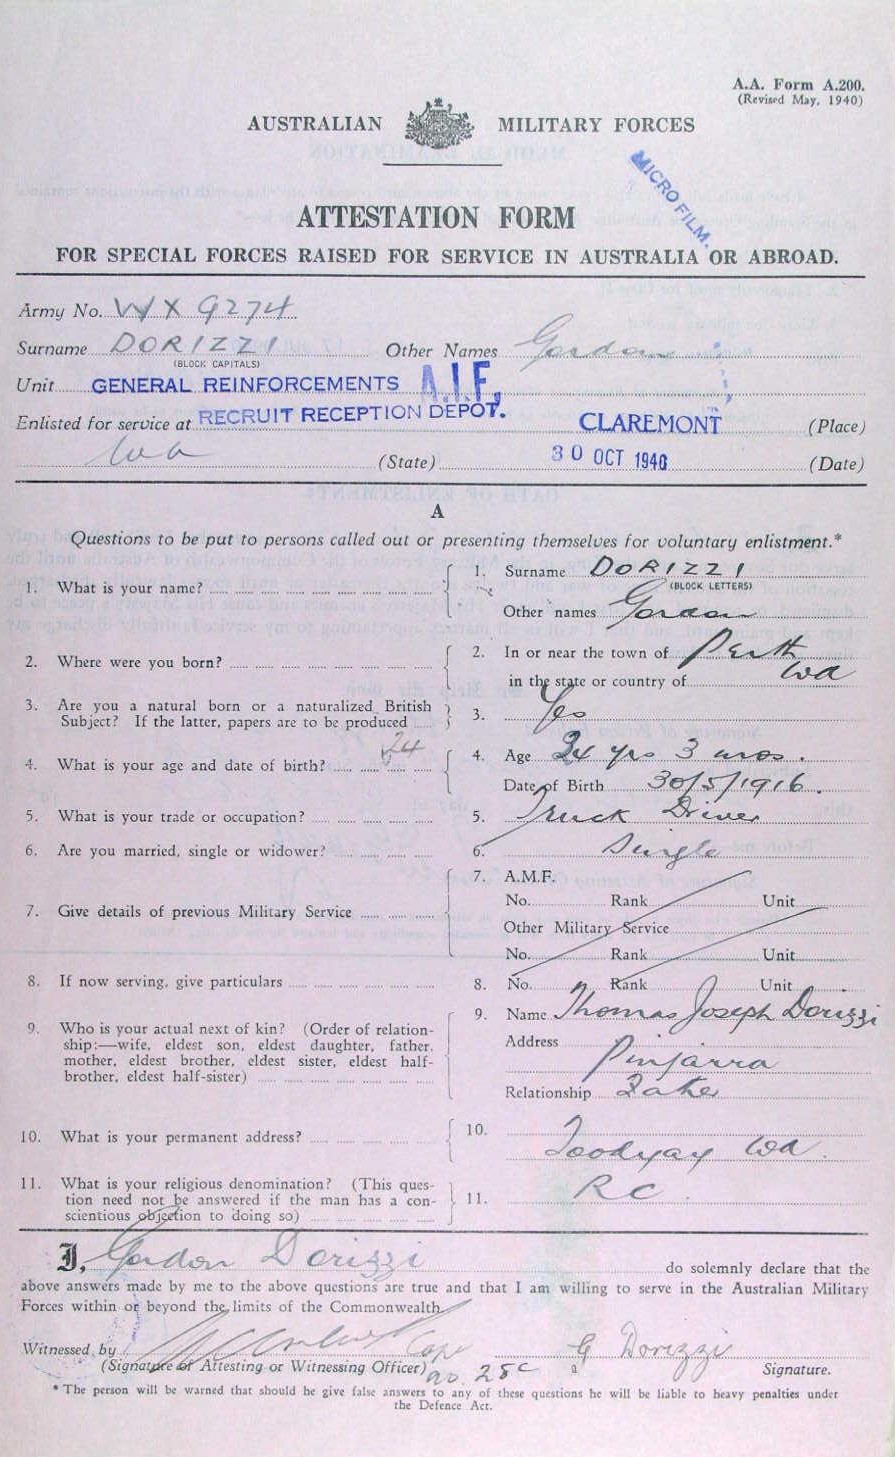 A.A. Form A.200.
(Revised May, 1940)
AUSTRALIAN MILITARY FORCES
MICRO FILM.
ATTESTATION FORM
FOR SPECIAL FORCES RAISED FOR SERVICE IN AUSTRALIA OR ABROAD.
Army No. WX 9274
Surname DORIZZI Other Names Gordon
(BLOCK CAPITALS)
Unit GENERAL REINFORCEMENTS A.I.F.
Enlisted for service at RECRUIT RECEPTION DEPOT. CLAREMONT (Place)
WA (State) 30 OCT 1940 (Date)
A
Questions to be put to persons called out or presenting themselves for voluntary enlistment.*
1. What is your name? 1. Surname DORIZZI
(BLOCK LETTERS)
Other names Gordon
2. Where were you born? 2. In or near the town of Perth
in the state or country of WA
3. Are you a natural born or a naturalized British
Subject? If the latter, papers are to be produced 3. Yes
24
4. What is your age and date of birth? 4. Age 24 yrs 3 mos.
Date of Birth 30/5/1916.
5. What is your trade or occupation? 5. Truck Driver
6. Are you married, single or widower? 6. Single
7. Give details of previous Military Service 7. A.M.F.
No. Rank Unit
Other Military Service
No. Rank Unit
8. If now serving, give particulars 8. No. Rank Unit
9. Who is your actual next of kin? (Order of relation-
ship:—wife, eldest son, eldest daughter, father,
mother, eldest brother, eldest sister, eldest half-
brother, eldest half-sister)
9. Name Thomas Joseph Dorizzi
Address Pinjarra
Relationship Father
10. What is your permanent address? 10. Toodyay WA.
11. What is your religious denomination? (This ques-
tion need not be answered if the man has a con-
scientious objection to doing so) 11. RC.
I, Gordon Dorizzi do solemnly declare that the
above answers made by me to the above questions are true and that I am willing to serve in the Australian Military
Forces within or beyond the limits of the Commonwealth.
Witnessed by Capt G Dorizzi
(Signature of Attesting or Witnessing Officer) Signature.
* The person will be warned that should he give false answers to any of these questions he will be liable to heavy penalties under
the Defence Act.